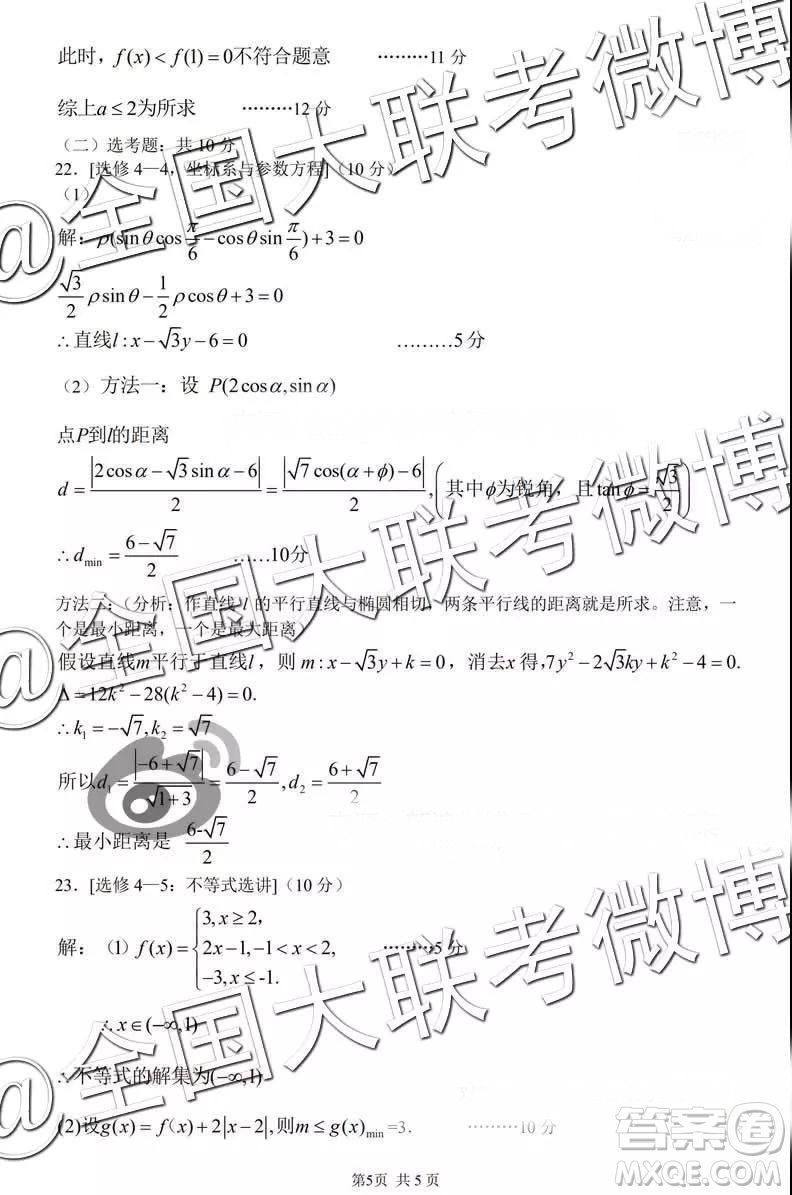 此时, f(x) < f(1) = 0不符合题意 ………11 分
综上a ≤ 2为所求 ………12 分
（二）选考题：共 10 分
22．[选修 4—4，坐标系与参数方程]（10 分）
（1）
解：ρ(sinθcos π/6 − cosθsin π/6) + 3 = 0
√3/2 ρsinθ − 1/2 ρcosθ + 3 = 0
∴直线l : x − √3y − 6 = 0 ………5 分
（2）方法一：设 P(2cosα, sinα)
点P到l的距离
d = |2cosα − √3sinα − 6|/2 = |√7cos(α + ϕ) − 6|/2, (其中ϕ为锐角，且tanϕ = √3/2)
∴d_min = (6 − √7)/2 ……10分
方法二：（分析：作直线 l 的平行直线与椭圆相切，两条平行线的距离就是所求。注意，一
个是最小距离，一个是最大距离）
假设直线m平行于直线l，则 m : x − √3y + k = 0，消去x 得, 7y² − 2√3ky + k² − 4 = 0.
Δ = 12k² − 28(k² − 4) = 0.
∴k₁ = −√7, k₂ = √7
所以d₁ = |−6 + √7|/√(1+3) = (6 − √7)/2, d₂ = (6 + √7)/2
∴最小距离是 (6-√7)/2
23．[选修 4—5：不等式选讲]（10 分）
解：（1）f(x) = { 3, x ≥ 2,
2x − 1, −1 < x < 2,
−3, x ≤ -1. ………5 分
∴x ∈ (−∞,1)
∴不等式的解集为(−∞,1)
(2)设g(x) = f(x) + 2|x − 2|, 则 m ≤ g(x)_min =3. ………10 分
第5页 共 5 页
@全国大联考微博
@全国大联考微博
@全国大联考微博
答案卷
MXQE.COM